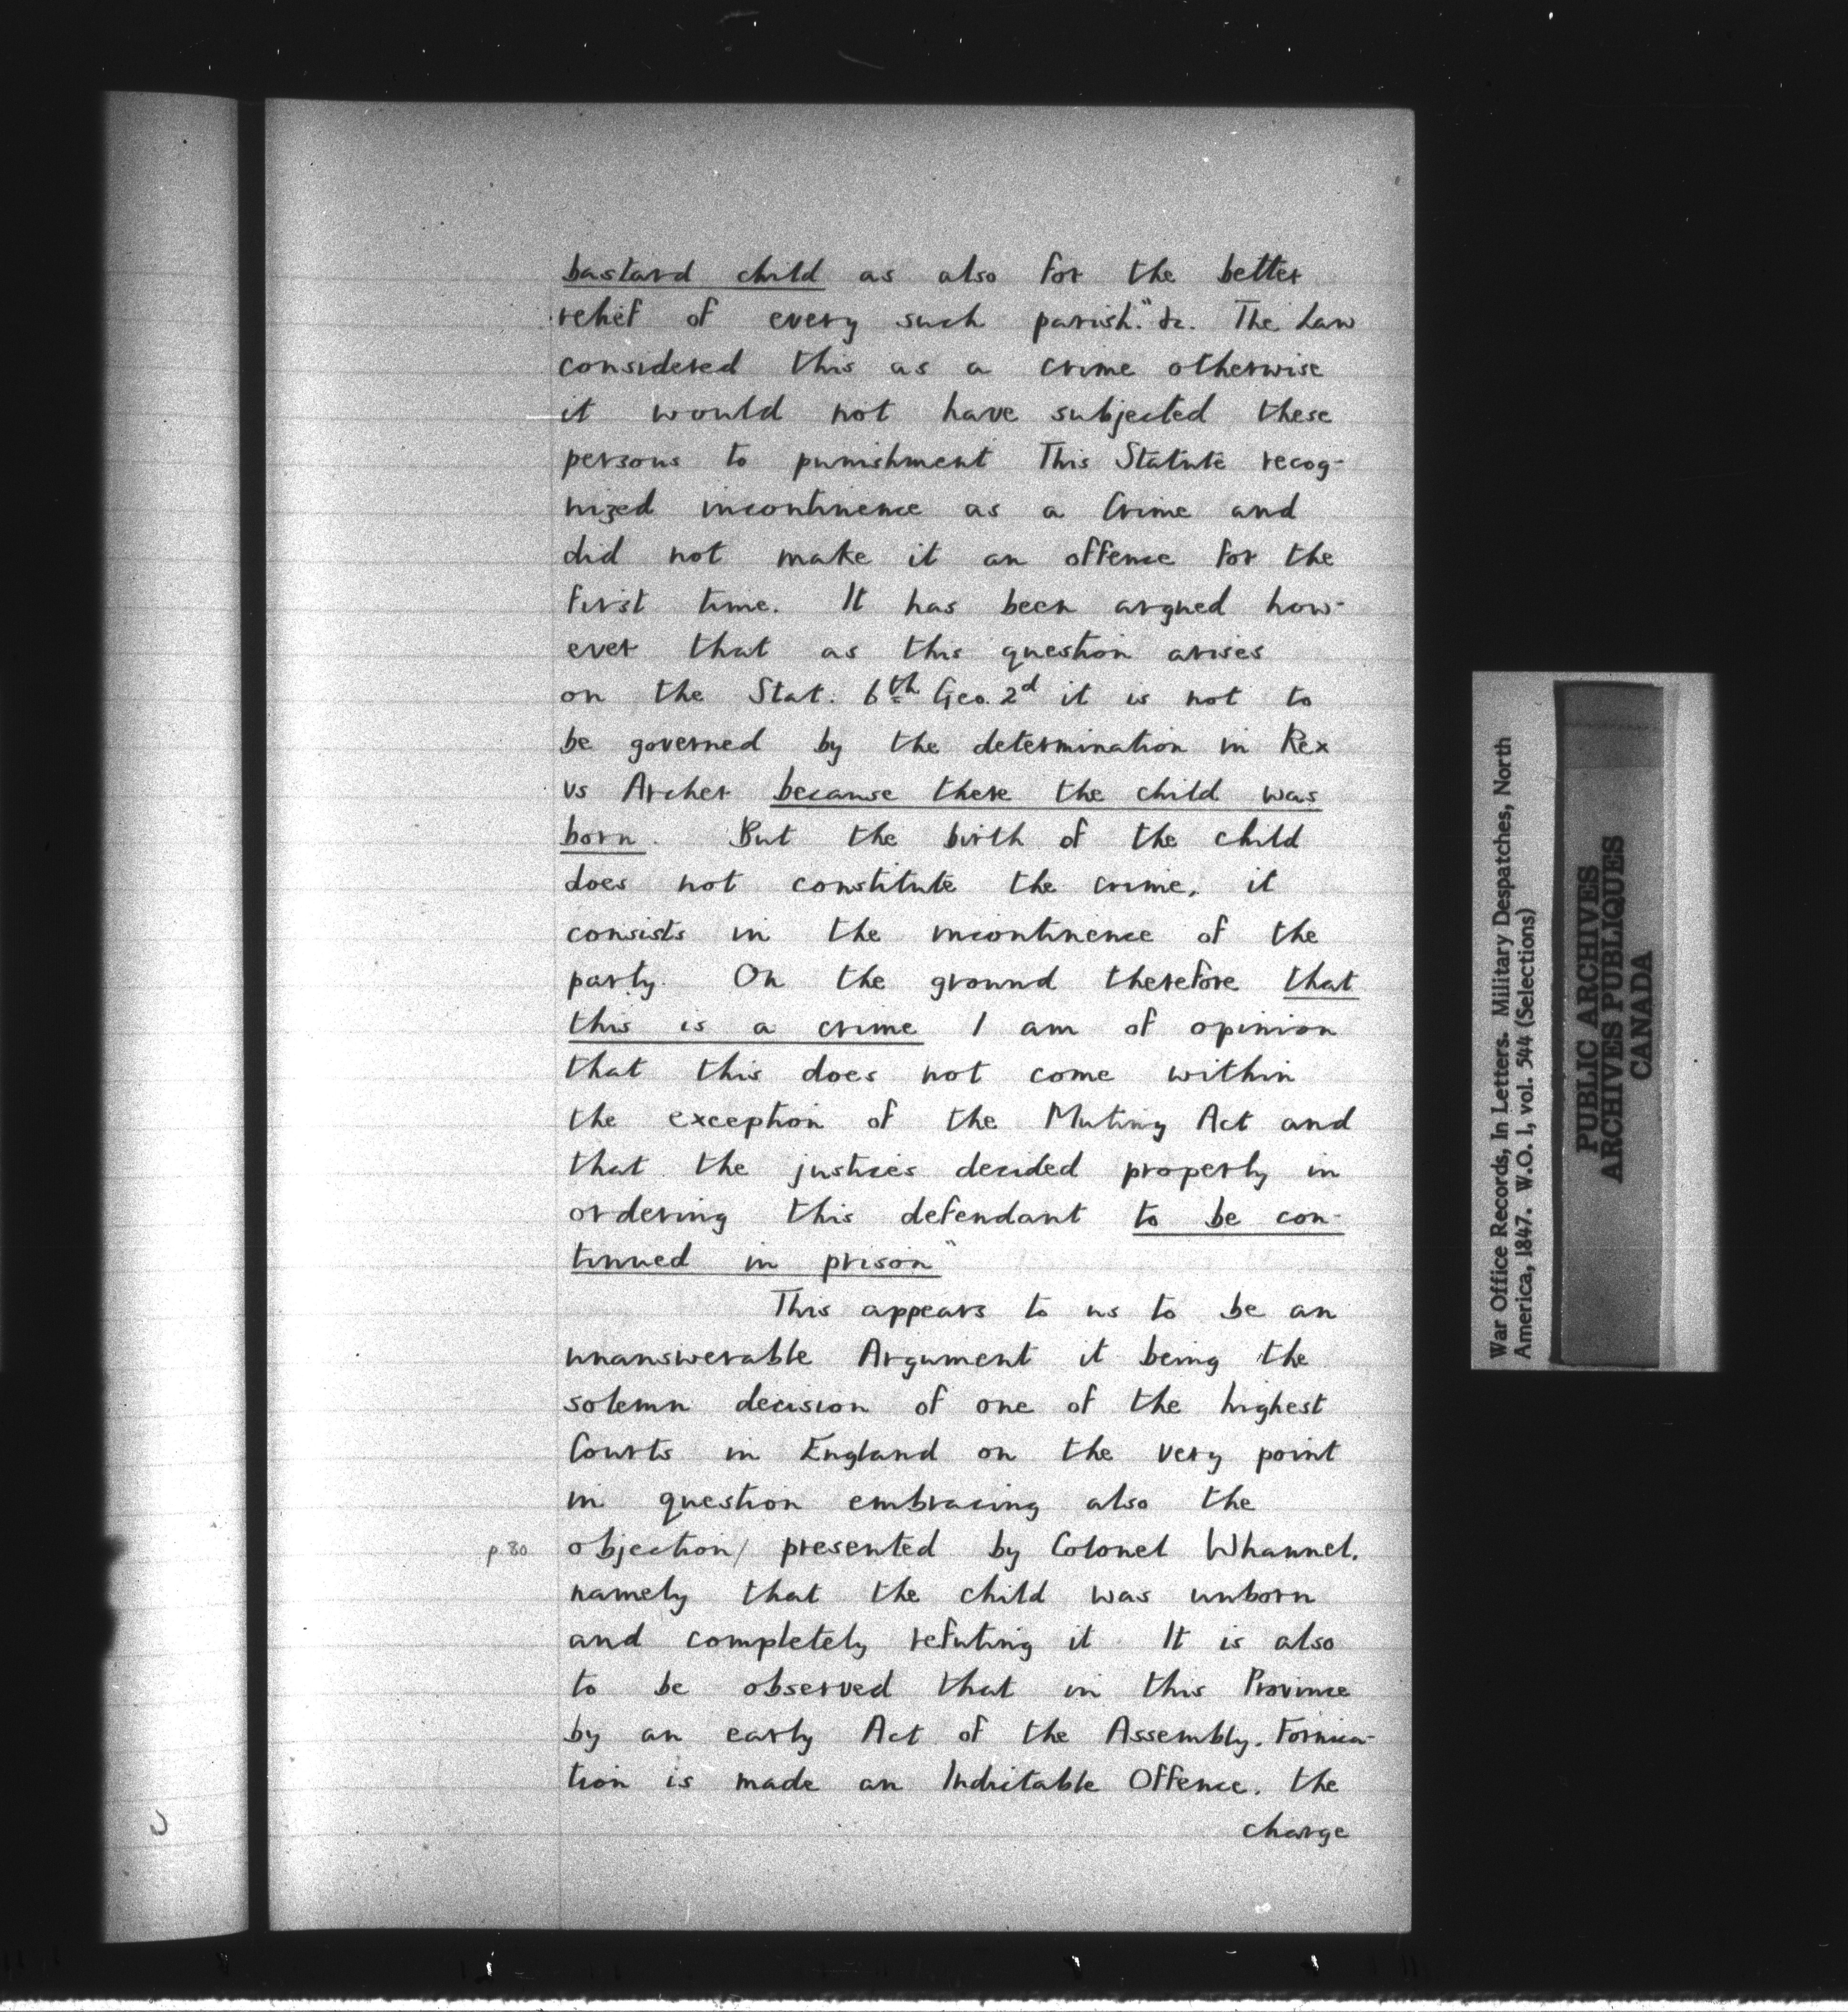 bastard child as also for the better
relief of every such parish." &c. The Law
considered this as a crime otherwise
it would not have subjected these
persons to punishment This Statute recog-
nized incontinence as a Crime and
did not make it an offence for the
first time. It has been argued how-
ever that as this question arises
on the Stat. 6th Geo. 2d it is not to
be governed by the determination in Rex
vs Archer because there the child was
born. But the birth of the child
does not constitute the crime, it
consists in the incontinence of the
party. On the ground therefore that
this is a crime I am of opinion
that this does not come within
the exception of the Mutiny Act and
that the justices decided properly in
ordering this defendant to be con-
tinued in prison"
This appears to us to be an
unanswerable Argument it being the
solemn decision of one of the highest
Courts in England on the very point
in question embracing also the
p. 80 objection/ presented by Colonel Whannel,
namely that the child was unborn
and completely refuting it. It is also
to be observed that in this Province
by an early Act of the Assembly, Fornica-
tion is made an Indictable Offence, the
charge
War Office Records, In Letters. Military Despatches, North
America, 1847. W.O. 1, vol. 544 (Selections)
PUBLIC ARCHIVES
ARCHIVES PUBLIQUES
CANADA